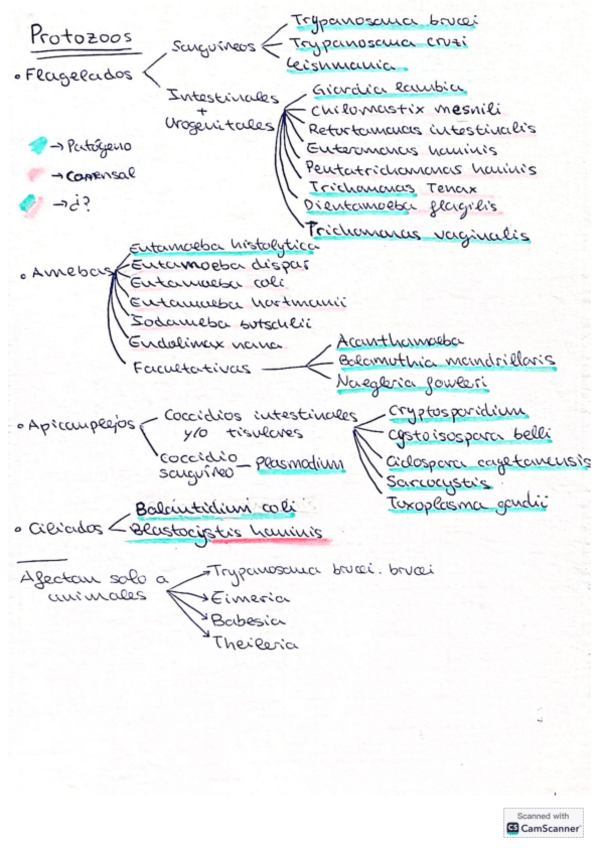 Protozoos
• Flagelados
Sanguíneos
Trypanosoma brucei
Trypanosoma cruzi
Leishmania
Intestinales
+
Urogenitales
Giardia lambia
Chilomastix mesnili
Retortamonas intestinalis
Enteromonas hominis
Pentatrichomonas hominis
Trichomonas Tenax
Dientamoeba flagilis
Trichomonas vaginalis
→ Patógeno
→ comensal
→ ¿?
• Amebas
Entamoeba histolytica
Entamoeba dispar
Entamoeba coli
Entamoeba hartmanii
Iodameba butschlii
Endolimax nana
Facultativas
Acanthamoeba
Balamuthia mandrillaris
Naegleria fowleri
• Apicomplejos
Coccidios intestinales
y/o tisulares
Cryptosporidium
Cystoisospora belli
Ciclospora cayetanensis
Sarcocystis
Toxoplasma gondii
coccidio
sanguíneo – Plasmodium
• Ciliados
Balantidium coli
Blastocystis hominis
Afectan solo a
animales
Trypanosoma brucei. brucei
Eimeria
Babesia
Theileria
Scanned with
CS CamScanner